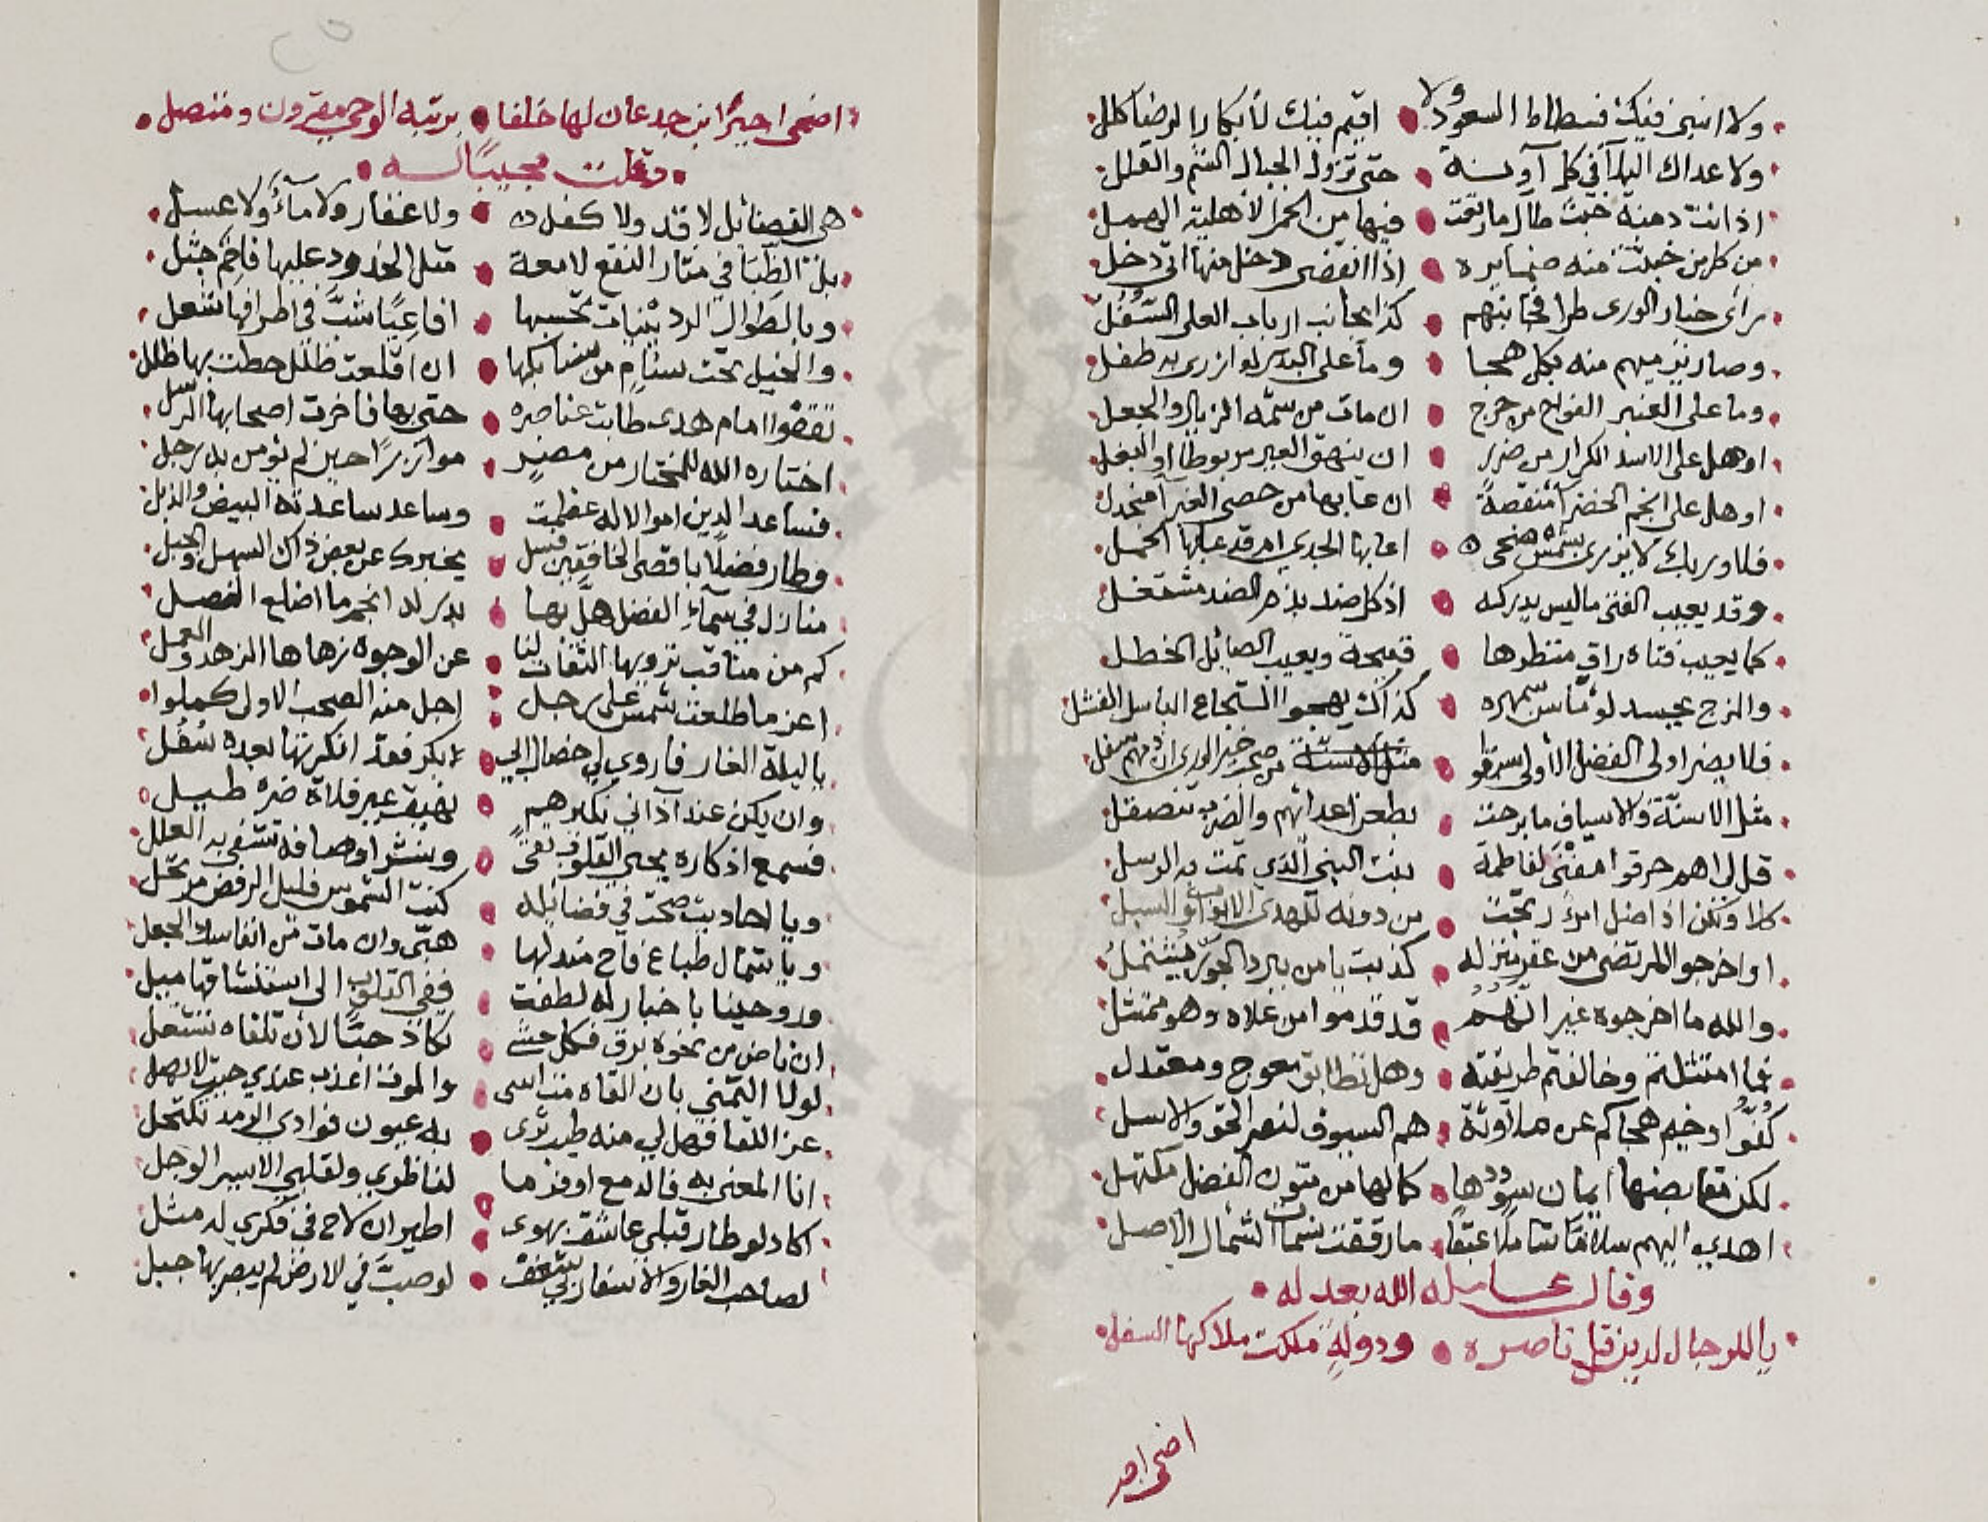 ولا انبنى فيك فسطاط السعود ولا • اقيم فيك لأبكار الرضا كلل
ولا عداك البلا في كل آونة • حتى تزول الجبال الشم والقلل
اذ انت دمنة خبث طال ما رتعت • فيها من الحمر الأهلية الهمل
من كل من خبثت منه ضمايره • اذا انقضى دخل منها اتى دخل
رأى خيار الورى طرا فجانبهم • كذا يجانب ارباب العلى السفل
وصار نيرميهم منه بكل هجا • وما على البدر لو ازرى به طفل
وما على العنبر الفواح من حرج • ان مات من شمه الزبال والجعل
او هل على الاسد الكرار من ضرر • ان ينهق العير مربوطا او البغل
او هل على انجم الخضرآ منقصة • ان عابها من حصى الغبرآ منجدل
فلا وربك لا يزرى بشمس ضحى • اعابها الجدي ام قد عابها الحمل
وقد يعيب الفتى ما ليس يدركه • اذ كل ضد بذم الضد مشتغل
كما يعيب فتاة راق منظرها • قبيحة ويعيب الصائل الخطل
والزج يحسد لوما سمهره • كذاك يهجو الشجاع الباسل الفشل
فلا يضر اولى الفضل الأولى سبقوا • من صحب خير الورى ان ذمهم سفل
مثل الاسنة والاسياف ما برحت • بطعن اعدائهم والضرب تنصقل
قل لى اهم حرقوا مغنى لفاطمة • بنت النبي الذي تمت به الرسل
كلا ولكن اذا ضل امرؤ رتجت • من دونه للهدى الابواب والسبل
او اخرجوا المرتضى من عقر منزله • كذبت يا من ببرد الجور يشتمل
والله ما اخرجوه غير انهم • قد قدموا من علاه وهو ممتثل
فما امتثلتم وخالفتم طريقته • وهل تطابق معوج ومعتدل
كفوا وخيم هجاكم عن ملاوثة • هم السيوف لنصر الحق والاسل
لكن مقابضها ايمان سوددها • كما لها من متون الفضل مكتهل
اهدي اليهم سلاما شاملا عبقا • ما رققت نسمات الشمال الاصل
وقال عامله الله بعدله •
يا للرجال لدين قل ناصره • ودولة ملكت ملاكها السفل
اضحى اجير
اضحى اجيرا ابن جدعان لها خلفا • برتبة الوحي مقرون ومتصل
وقلت مجيبا له
هى الفضائل لا قد ولا كفل • ولا عقار ولا مآء ولا عسل
بل الظبا في مثار النقع لامعة • مثل الخدود عليها فاحم جثل
وبالطوال الردينيات تحسبها • افاعيا شب في اطرافها شعل
والخيل تحت سنام من سنابكها • ان اقلعت ظلل حطت بها ظلل
تقفوا امام هدى طابت عناصره • حتى بها فاخرت اصحابها الرسل
اختاره الله للمختار من مضر • موازرا حين لم يؤمن به رجل
فساعد الدين اموالا له عظمت • وساعد ساعدته البيض والذبل
وطار فضلا باقصى الخافقين فسل • يخبرك عن بعض ذاك السهل والجبل
منازل في سمآء الفضل هل بها • بدر له انجم ما اضلع الفصل
كم من مناقب ترويها الثقات لنا • عن الوجوه زهاها الزهد والعمل
اعز ما طلعت شمس على رجل • اجل منه الصحب الاول كملوا
يا ليلة الغار فاروي لي خصال ابي • بكر فقد انكرتها بعده سفل
وان يكن عند آذاني بكبرهيم • يضيق عير فلاة ضره طبل
فسمع اذكاره يحيى القلوب تقى • وينشر اوصافه تشفى به العلل
ويا احاديث صحت في فضائله • كنت الشموس فليل الرفض مرتحل
ويا شمال طباع فاح مندلها • هبى وان مات من انفاسك الجعل
وروحينا باخبار له لطفت • ففي القلوب الى استنشاقها ميل
ان ناض من نحوه برق فكل حشى • تكاد حبا لان تلقاه تشتعل
لولا التمني بان القاه مت اسى • والموت اعذب عندي حيث لا يصل
عز اللقا فهل لي منه طيب ثرى • به عيون فوادى الرمد تكتحل
انا المعنى به فالدمع اوفر ما • لناظري ولقلبي الاسير الوجل
اكاد لو طار قبلي عاشق بهوى • اطير ان لاح في فكري له مثل
لصاحب الغار والاسفار بي شغف • لو صب في الارض لم يبصر بها جبل